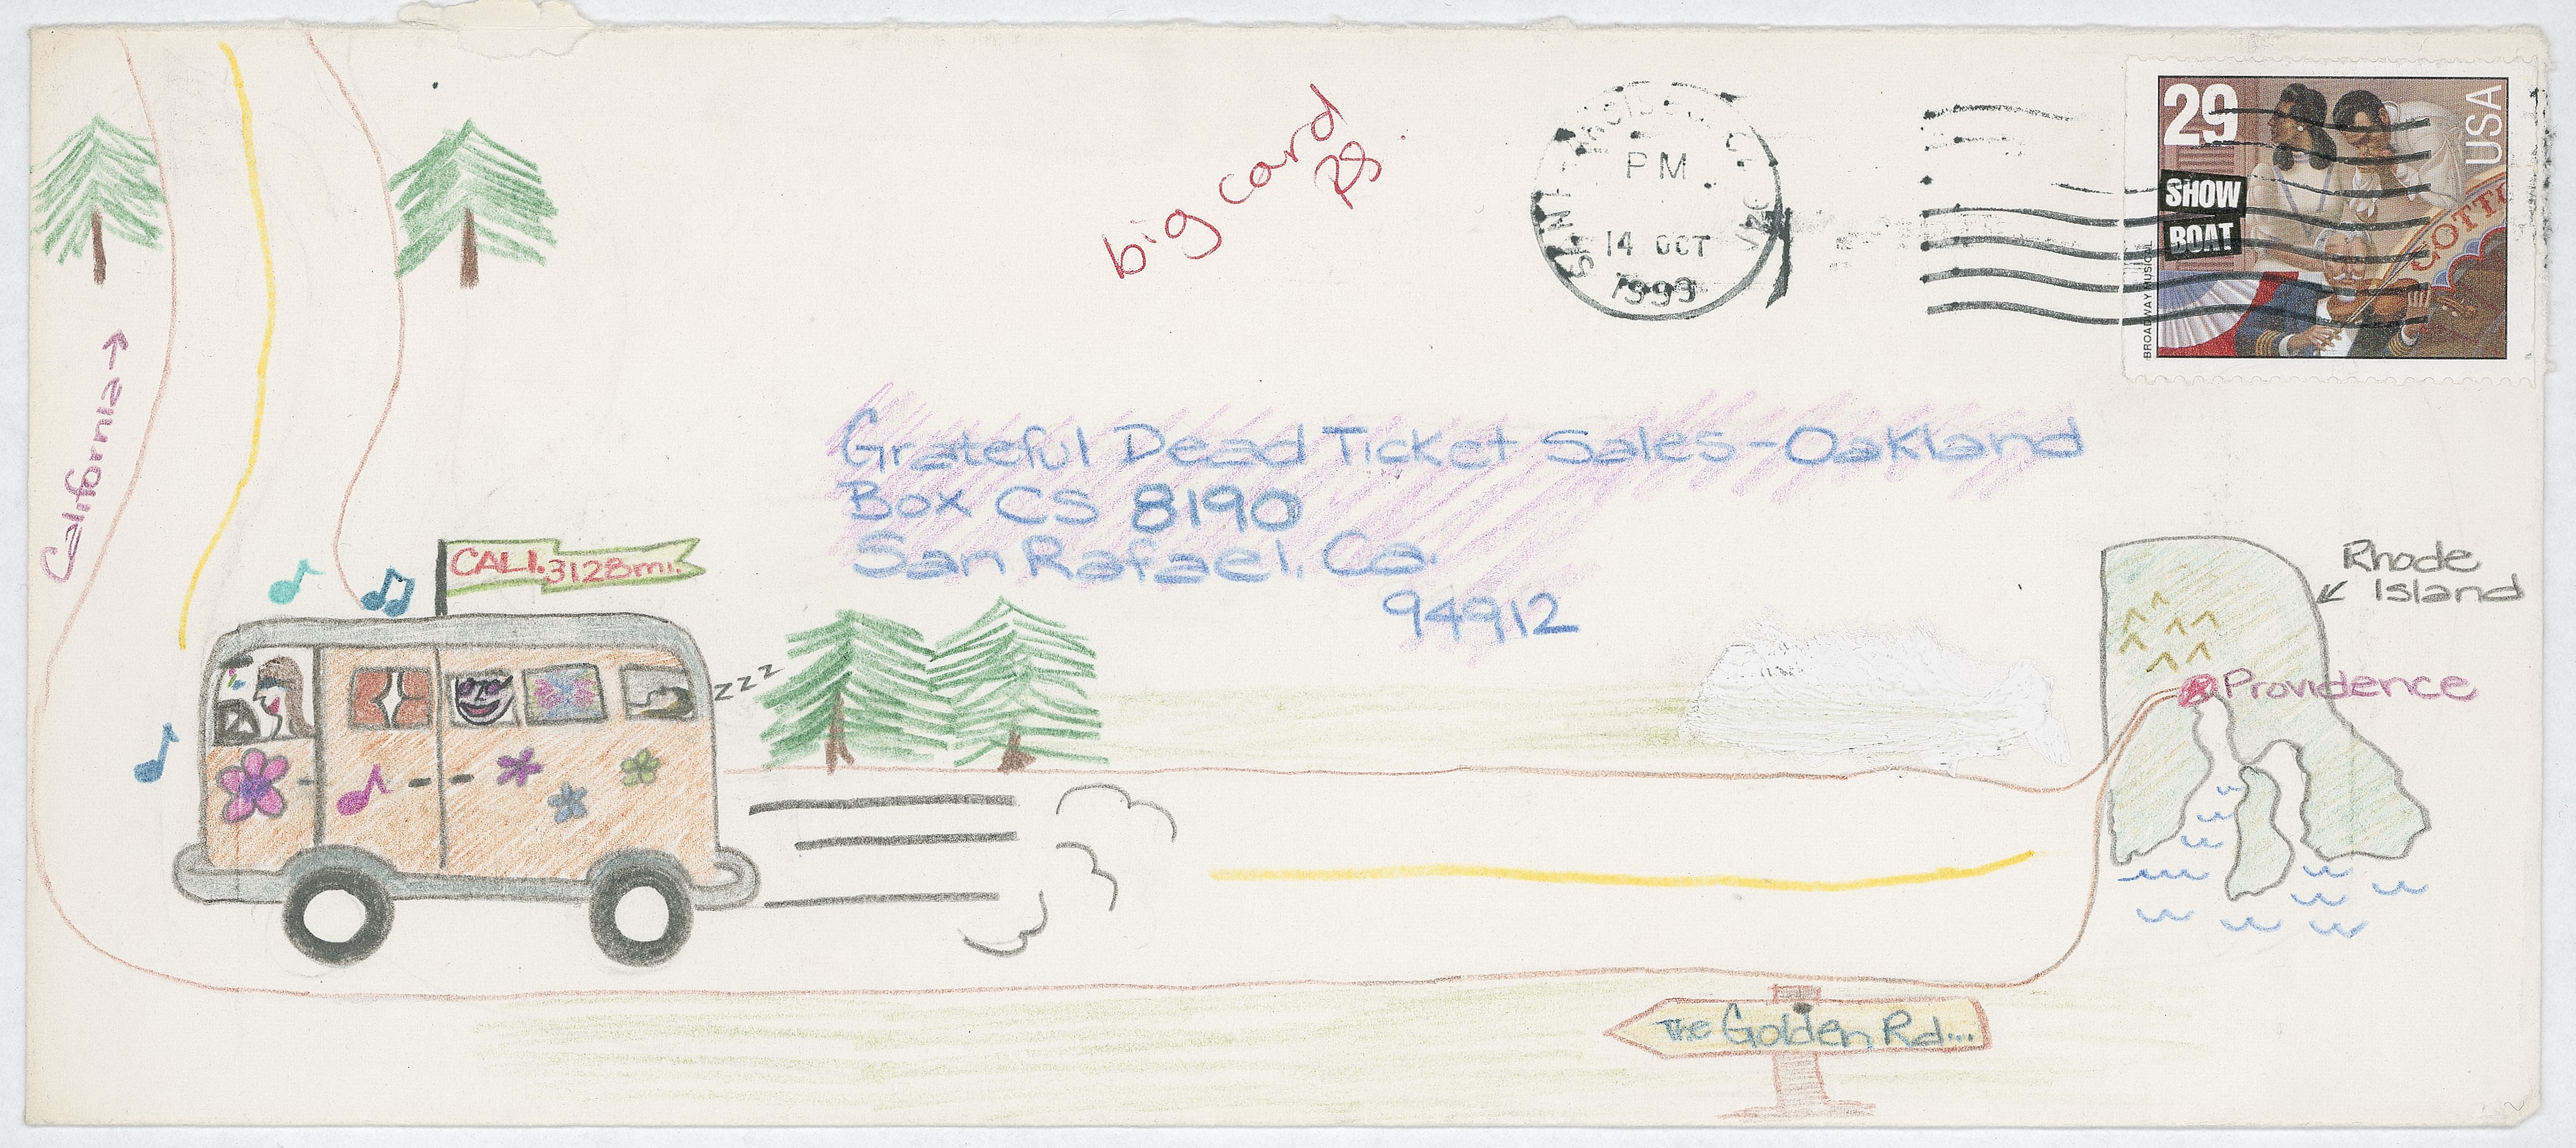 big card
RS.
SAN FRANCISCO, CA
PM
14 OCT
1993
29
USA
SHOW
BOAT
COTT
BROADWAY MUSICAL
California →
Grateful Dead Ticket Sales-Oakland
Box CS 8190
San Rafael, Ca.
94912
CALI. 3128mi.
zzz
Rhode
Island
Providence
The Golden Rd...